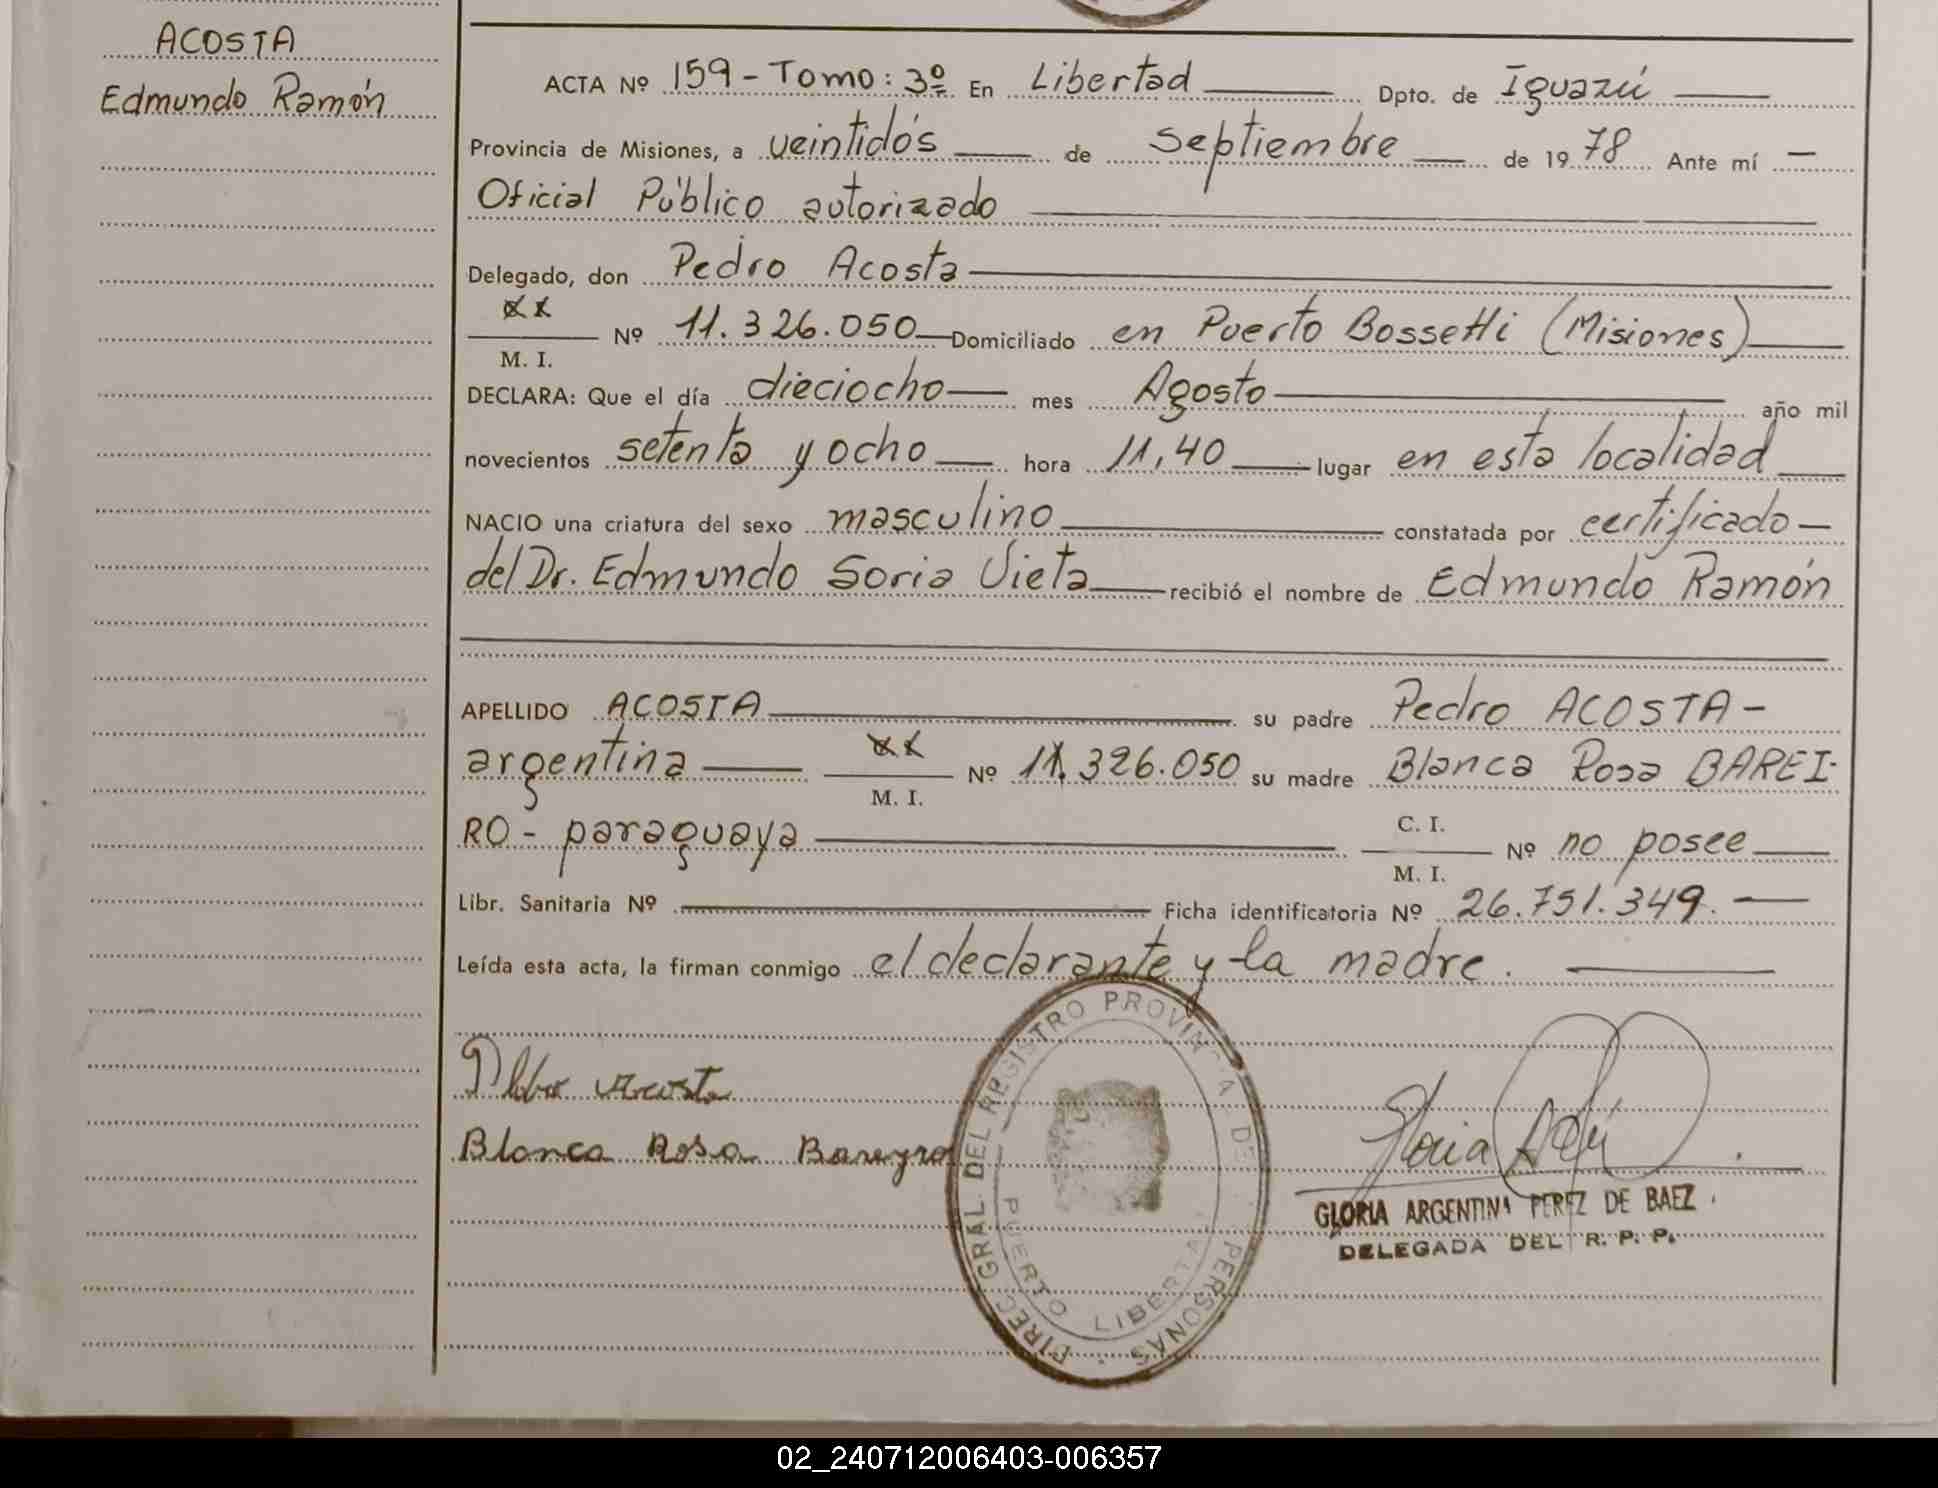 ACOSTA
Edmundo Ramón
ACTA Nº 159 - Tomo: 3º En Libertad Dpto. de Iguazú
Provincia de Misiones, a veintidós de septiembre de 1978 Ante mí
Oficial Público autorizado
Delegado, don Pedro Acosta
M. I. Nº 11.326.050 Domiciliado en Puerto Bossetti (Misiones)
DECLARA: Que el día dieciocho mes Agosto año mil
novecientos setenta y ocho hora 11,40 lugar en esta localidad
NACIO una criatura del sexo masculino constatada por certificado
del Dr. Edmundo Soria Vieta recibió el nombre de Edmundo Ramón
APELLIDO ACOSTA su padre Pedro ACOSTA -
argentina M. I. Nº 11.326.050 su madre Blanca Rosa BAREI-
RO - paraguaya C. I. M. I. Nº no posee
Libr. Sanitaria Nº Ficha identificatoria Nº 26.751.349.
Leída esta acta, la firman conmigo el declarante y la madre.
Acosta
Blanca Rosa Bareyro
DIREC. GRAL. DEL REGISTRO PROVINCIA DE PERSONAS
PUERTO LIBERTA
Gloria
GLORIA ARGENTINA PEREZ DE BAEZ
DELEGADA DEL R. P. P.
02_240712006403-006357